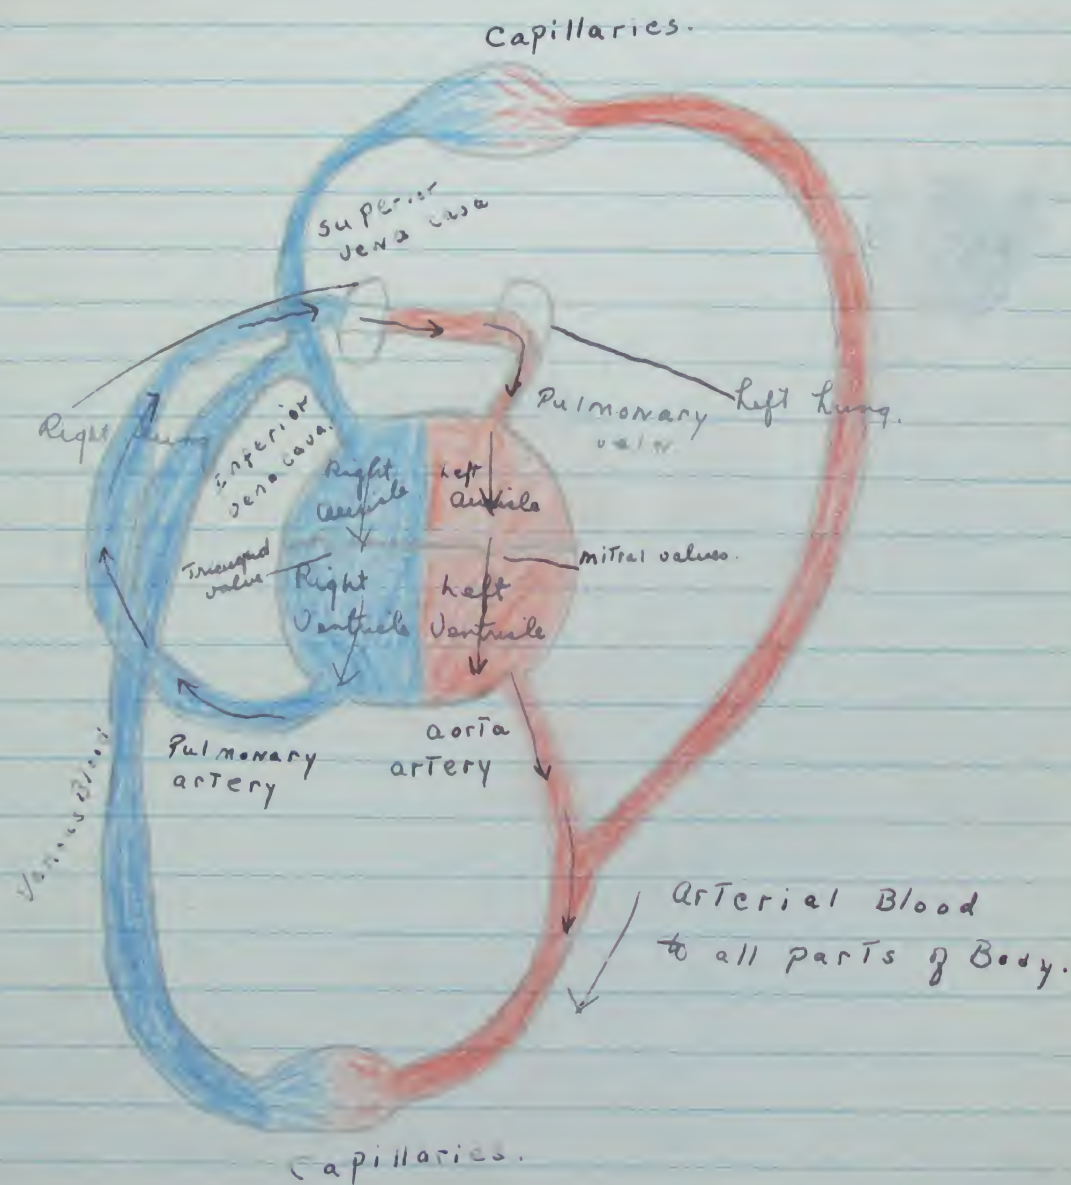 Capillaries.
superior
vena cava
Right Lung
Inferior
vena cava.
Pulmonary
vein
Left Lung.
Right
auricle
Left
auricle
Tricuspid
valve
mitral valves.
Right
Ventricle
Left
Ventricle
Pulmonary
artery
aorta
artery
Venous Blood
Arterial Blood
to all parts of Body.
Capillaries.